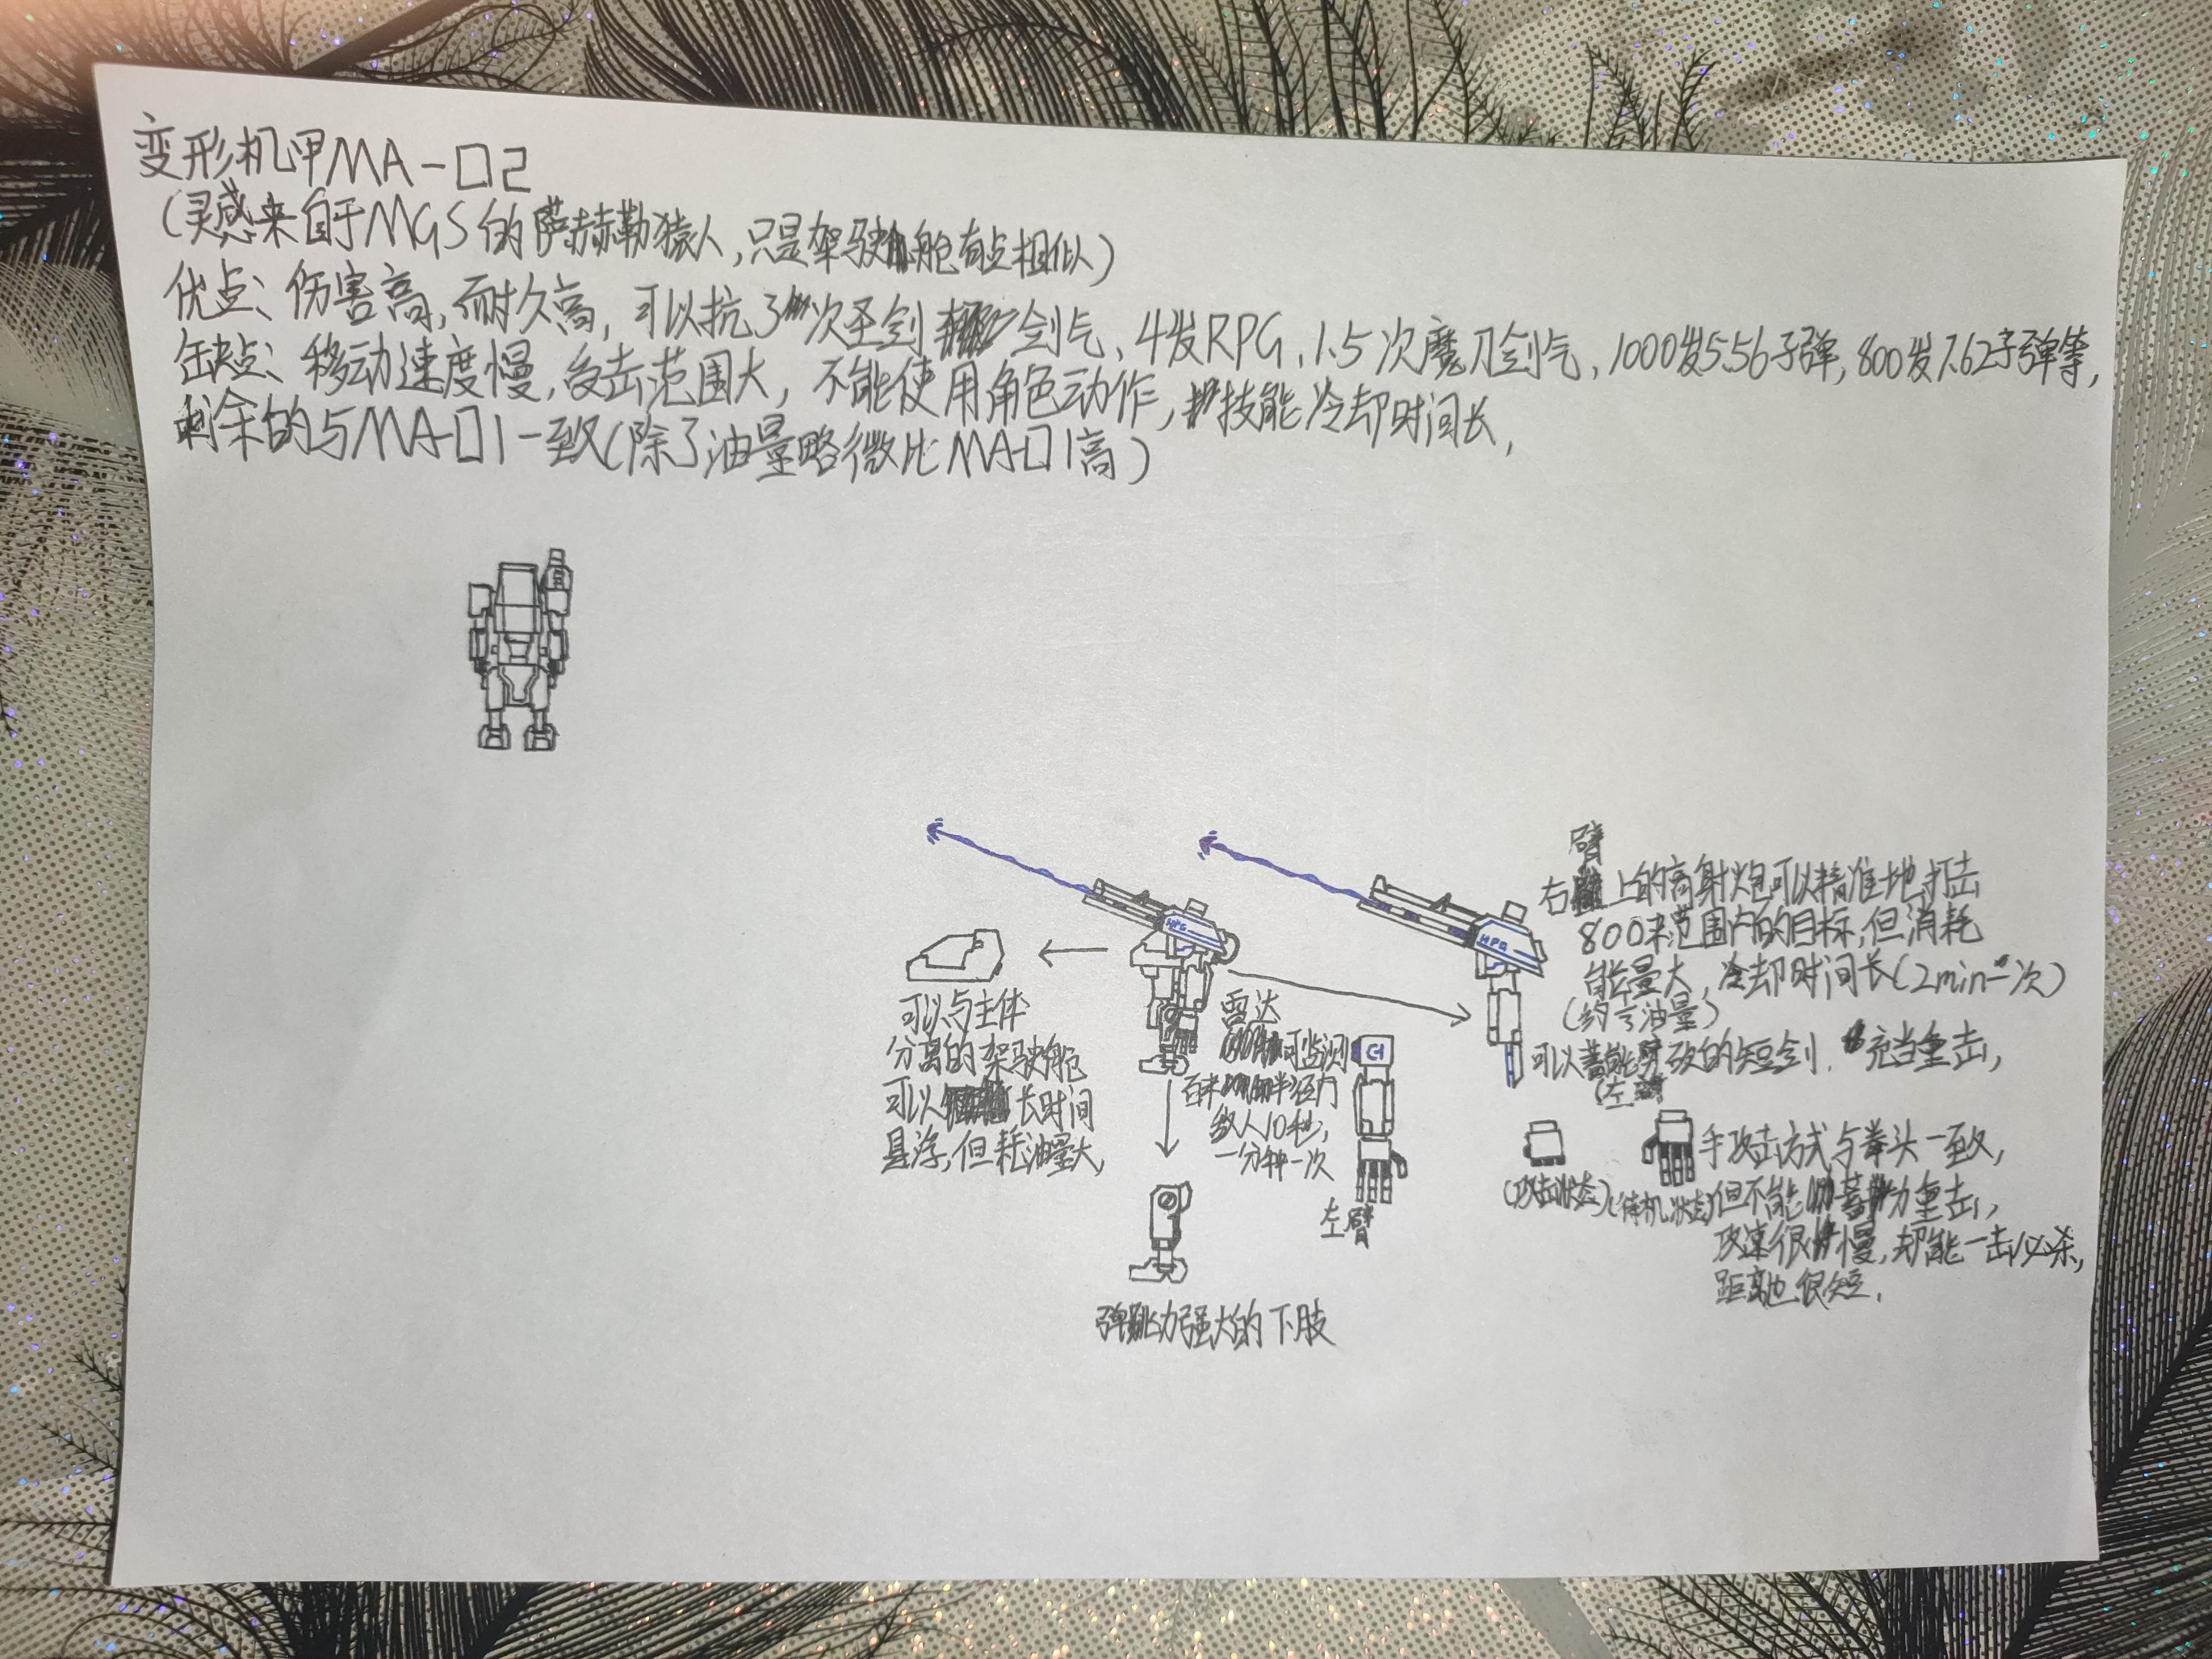 变形机甲MA-02
(灵感来自于MGS的萨赫勒猿人,只是架驶舱有点相似)
优点:伤害高,耐久高,可以抗3次圣剑剑气、4发RPG、1.5次魔刀剑气、1000发5.56子弹,800发7.62子弹等,
缺点:移动速度慢,受击范围大,不能使用角色动作,技能冷却时间长,
剩余的与MA-01一致(除了油量略微比MA-01高)
可以与主体
分离的架驶舱
可以长时间
悬浮,但耗油量大,
雷达
可监测
百米半径内
敌人10秒,
一分钟一次
G1
左臂
弹跳力强大的下肢
HPG
HPG
臂
右上的高射炮可以精准地打击
800米范围内的目标,但消耗
能量大,冷却时间长(2min一次)
油量)
可以蓄能的短剑.充当重击,
(攻击状态)
(待机状态)
手攻击方式与拳头一致,
但不能蓄力重击,
攻速很慢,却能一击必杀,
距离也很短.